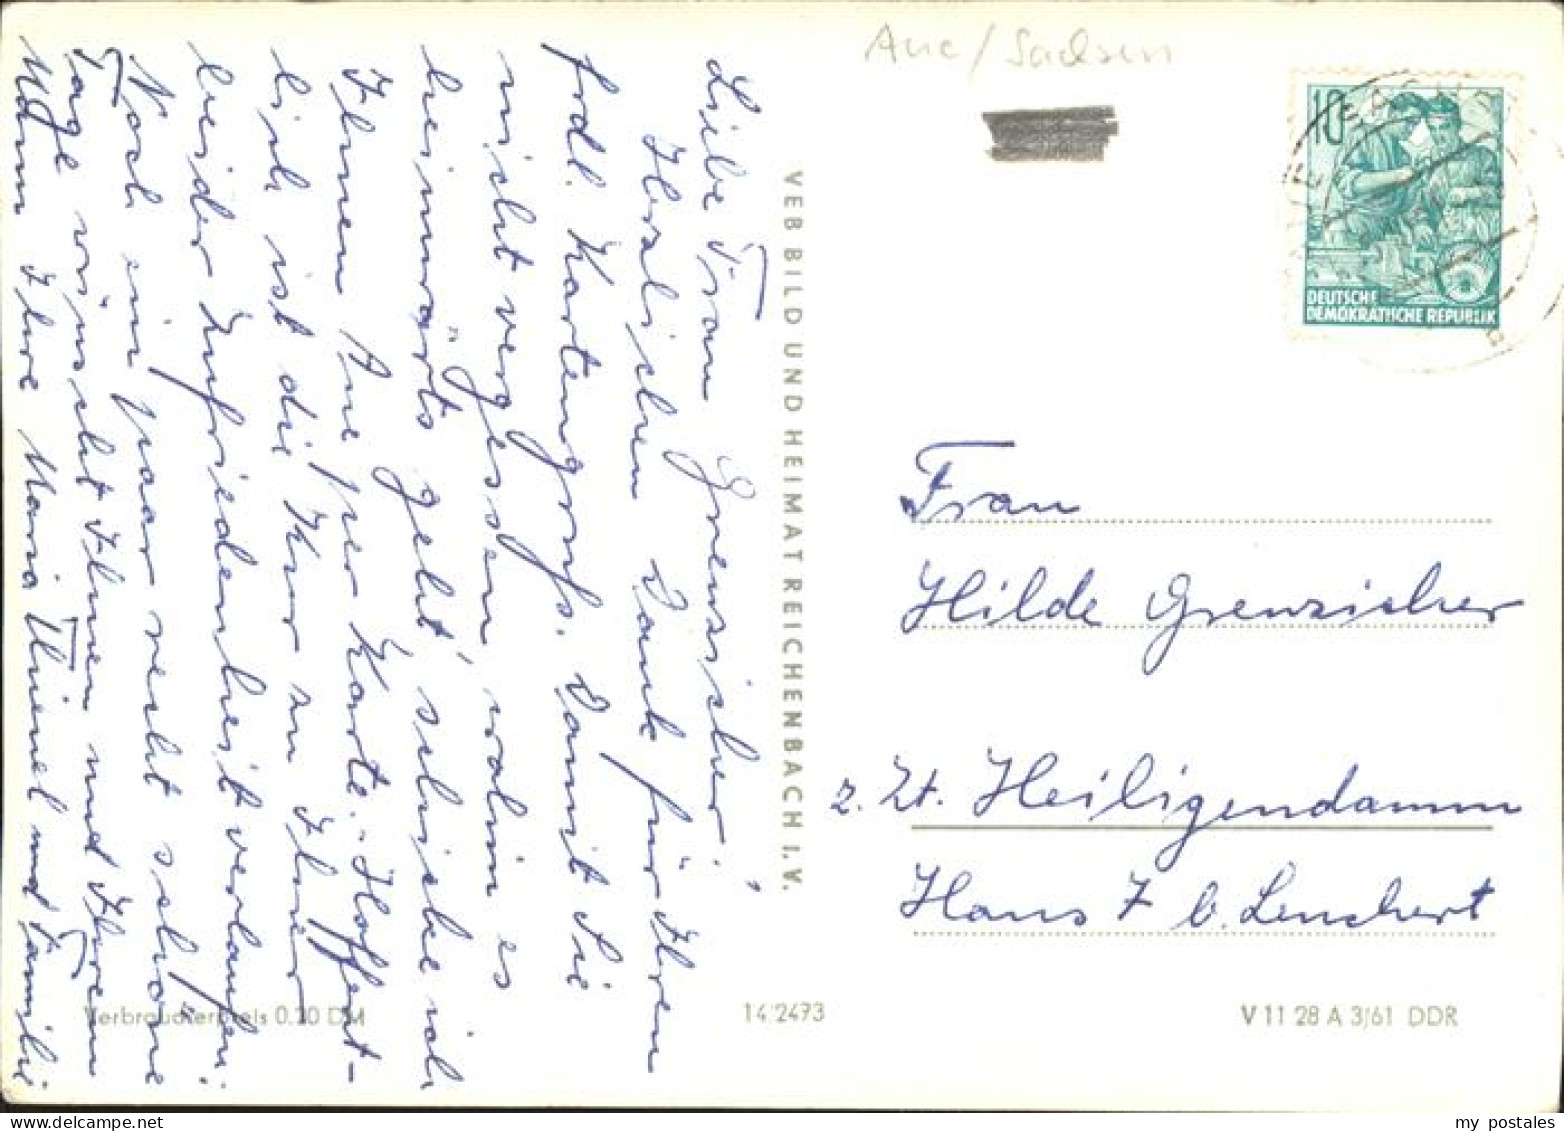 Aue/Sachsen
Liebe Frau Grenzicher,
Herzlichen Dank für Ihren
frdl. Kartengruß. Damit Sie
nicht vergessen, wohin es
„heimwärts geht", schicke ich
Ihnen Aue per Karte. - Hoffent-
lich ist die Kur zu Ihrer
beider Zufriedenheit verlaufen.
Noch ein paar recht schöne
Tage wünscht Ihnen und Ihrem
Mann Ihre Maria Thienel und Familie
VEB BILD UND HEIMAT REICHENBACH I.V.
10
DEUTSCHE
DEMOKRATISCHE REPUBLIK
Frau
Hilde Grenzicher
z. Zt. Heiligendamm
Haus 7 b. Lenchert
Verbraucherpreis 0.20 DM
14 2473
V 11 28 A 3/61 DDR
my postales